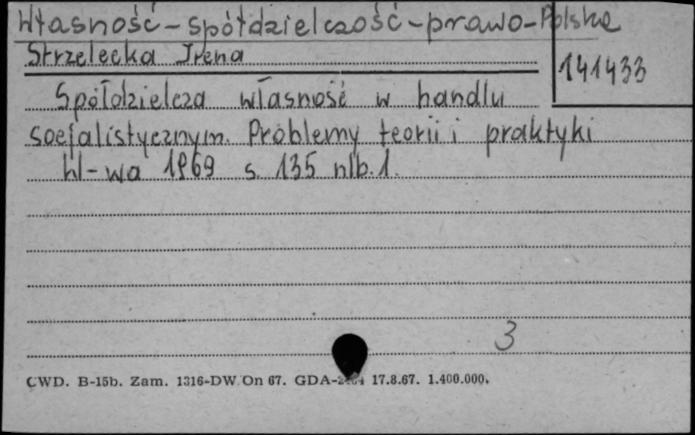 Własność-spółdzielczość-prawo-Polska
Strzelecka Irena
141433
Spółdzielcza własność w handlu
socjalistycznym. Problemy teorii i praktyki
W-wa 1969 s. 135 nlb. 1.
3
CWD. B-15b. Zam. 1316-DW On 67. GDA- 17.8.67. 1.400.000.